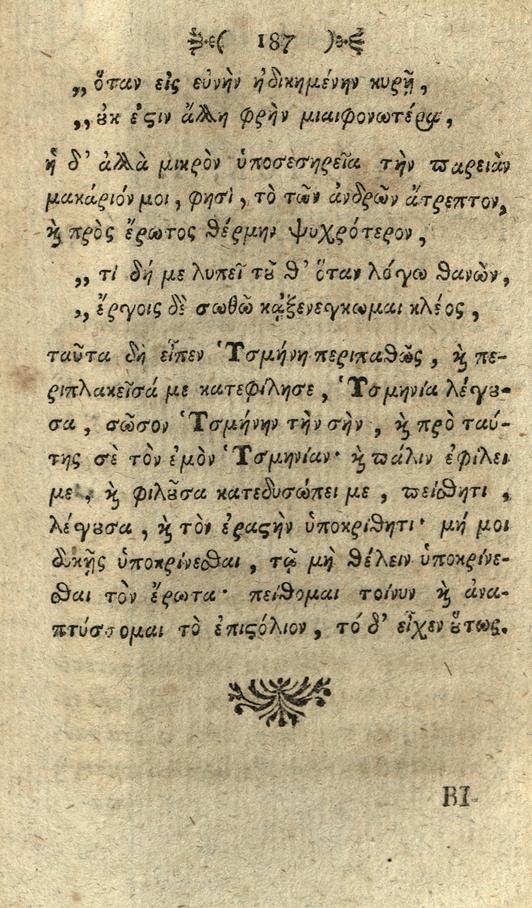 187
„ὅταν εἰς εὐνὴν ἠδικημένην κυρῇ,
„οὐκ ἔϛιν ἄλλη φρὴν μιαιφονωτέρα,
ἡ δ' ἀλλὰ μικρὸν ὑποσεσηρεῖα τὴν παρειὰν
μακάριόν μοι, φησὶ, τὸ τῶν ἀνδρῶν ἄτρεπτον,
ϗ πρὸς ἔρωτος θέρμην ψυχρότερον,
„τί δή με λυπεῖ τοῦ θ' ὅταν λόγω θανὼν,
„ἔργοις δὲ σωθῶ κᾀξενεγκωμαι κλέος,
ταῦτα δὴ εἶπεν Ὑσμήνη περιπαθῶς, ϗ πε-
ριπλακεῖσά με κατεφίλησε, Ὑσμηνία λέγου-
σα, σῶσον Ὑσμήνην τὴν σὴν, ϗ πρὸ ταύ-
της σὲ τὸν ἐμὸν Ὑσμηνίαν· ϗ πάλιν ἐφίλει
με, ϗ φιλοῦσα κατεδυσώπει με, πείσθητι,
λέγουσα, ϗ τὸν ἐραϛὴν ὑποκρίθητι· μή μοι
δοκῇς ὑποκρίνεσθαι, τῷ μὴ θέλειν ὑποκρίνε-
σθαι τὸν ἔρωτα· πείθομαι τοίνυν ϗ ἀνα-
πτύσσομαι τὸ ἐπιϛόλιον, τό δ' εἶχεν οὕτως.
ΒΙ-